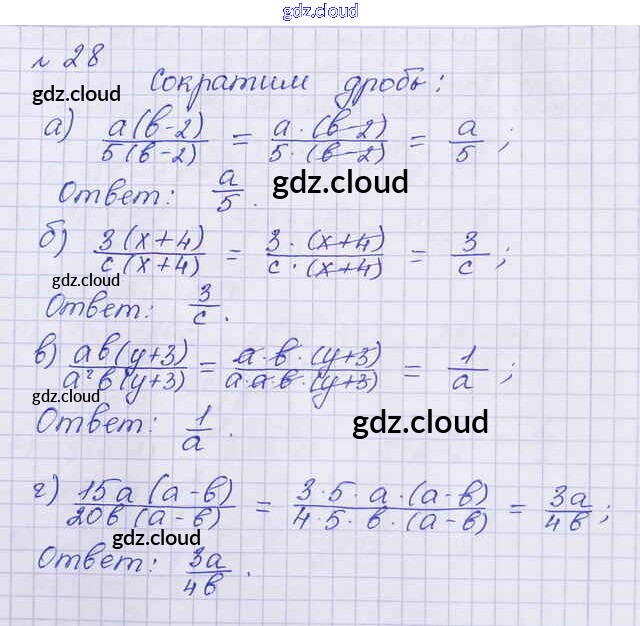 gdz.cloud
№ 28
gdz.cloud
Сократим дробь:
а) a(b-2)/5(b-2) = a·(b-2)/5·(b-2) = a/5 ;
Ответ: a/5 .
gdz.cloud
б) 3(x+4)/c(x+4) = 3·(x+4)/c·(x+4) = 3/c ;
gdz.cloud
Ответ: 3/c .
в) ab(y+3)/a²b(y+3) = a·b·(y+3)/a·a·b·(y+3) = 1/a ;
gdz.cloud
Ответ: 1/a .
gdz.cloud
г) 15a(a-b)/20b(a-b) = 3·5·a·(a-b)/4·5·b·(a-b) = 3a/4b ;
gdz.cloud
Ответ: 3a/4b .